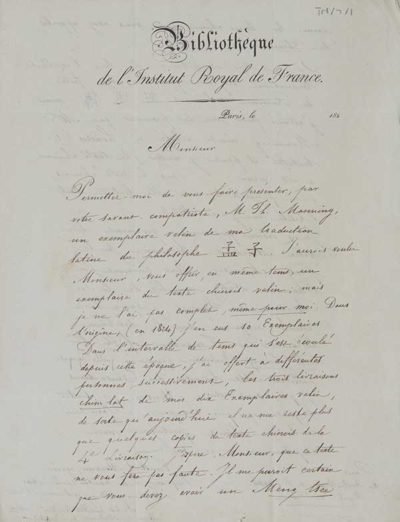 TM/7/1
Bibliothèque
de l'Institut Royal de France.
Paris, le 184
Monsieur
Permettez-moi de vous faire présenter, par
votre savant compatriote, M. Th. Manning,
un exemplaire velin de ma traduction
latine du philosophe 孟子. J'aurois voulu
Monsieur, vous offrir en même tems, un
exemplaire du texte chinois velin; mais
je ne l'ai pas complet, même pour moi. Dans
l'origine, (en 1824) j'en eus 10 Exemplaires
Dans l'intervalle de tems qui s'est écoulé
depuis cette époque, j'ai offert à différentes
personnes, successivement, les trois livraisons
chin. lat. de mes dix Exemplaires velin,
de sorte qu'aujourd'hui il ne me reste plus
que quelques copies du texte chinois de la
4e livraison. J'espère, Monsieur, que ce texte
ne vous fera pas faute. Il me paroit certain
que vous devez avoir un Meng tseu